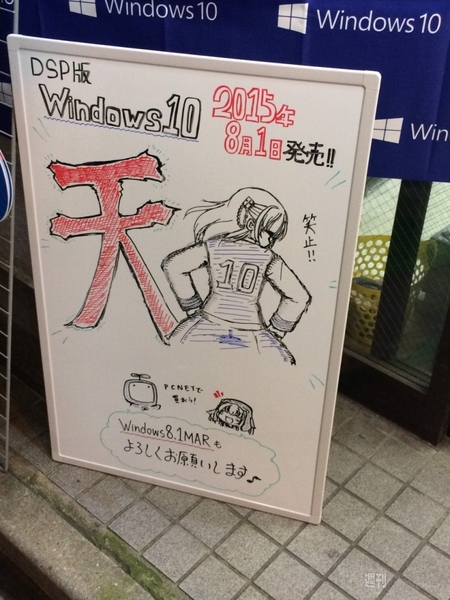 Windows 10
Windows 10
Win
DSP版
Windows10
2015年
8月1日発売!!
天
10
笑止!!
PCNETで
買おう!
Windows8.1MARも
よろしくお願いします♪
週刊